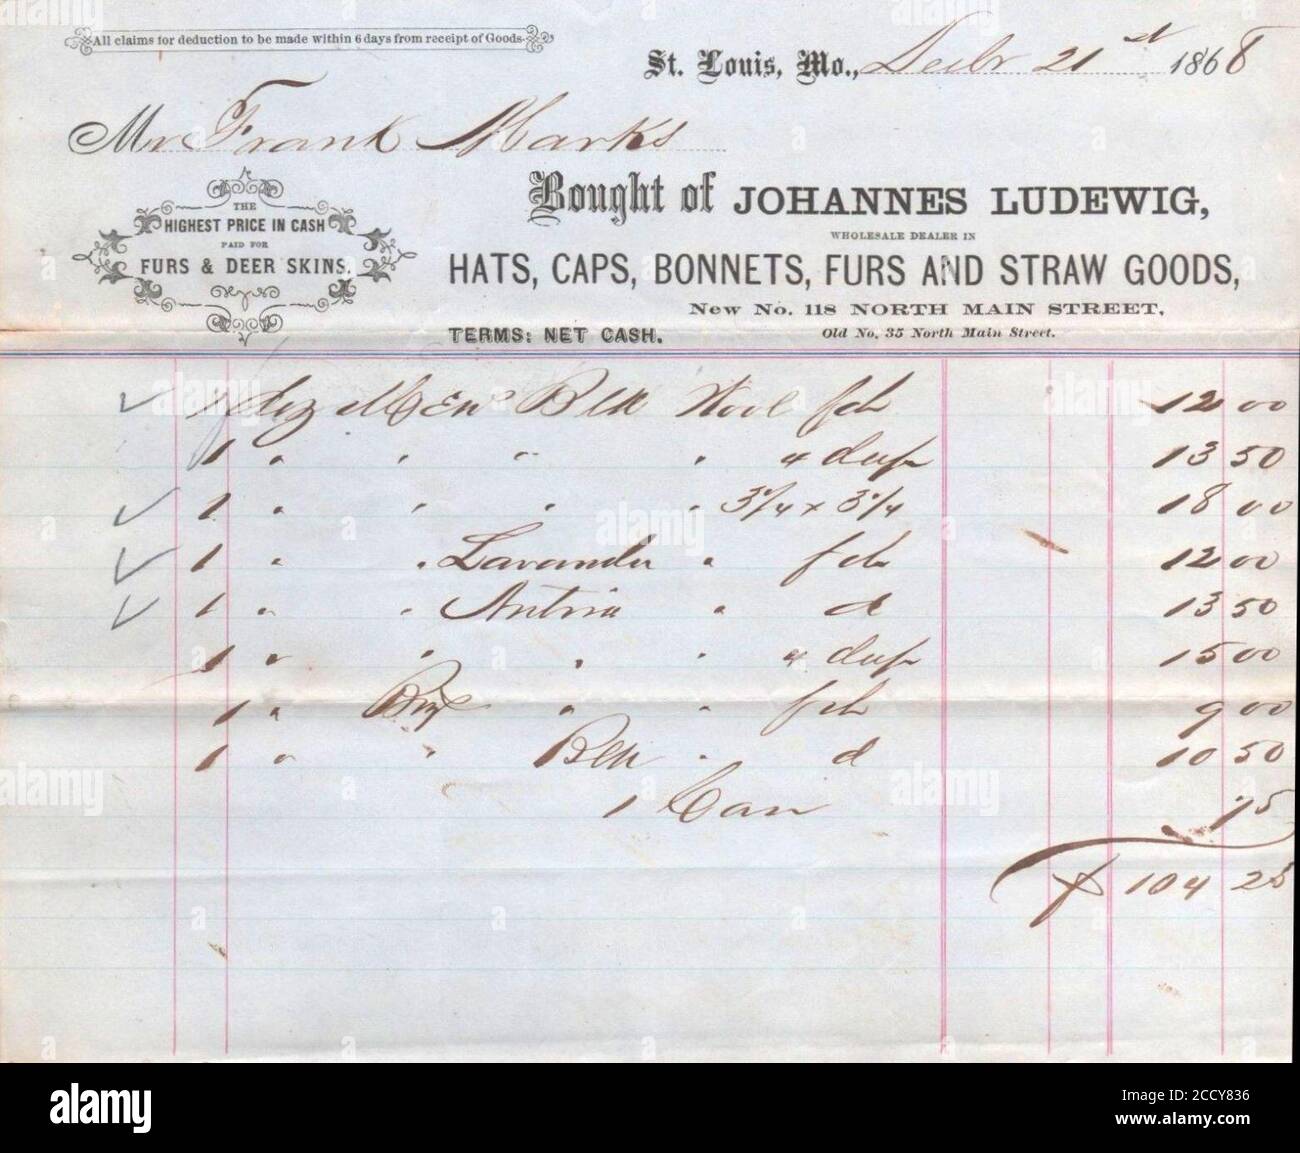 All claims for deduction to be made within 6 days from receipt of Goods.
St. Louis, Mo., Decbr 21st 1868
Mr Frank Marks
THE
HIGHEST PRICE IN CASH
PAID FOR
FURS & DEER SKINS.
Bought of JOHANNES LUDEWIG,
WHOLESALE DEALER IN
HATS, CAPS, BONNETS, FURS AND STRAW GOODS,
New No. 118 NORTH MAIN STREET,
TERMS: NET CASH. Old No. 35 North Main Street.
1 Blk Wool 12 00
1 " " " " 13 50
1 " " " " 3 1/4 x 3 1/4 18 00
1 " " Lavander " 12 00
1 " " " d 13 50
1 " " " " 15 00
1 " " " 9 00
1 " " Blk " d 10 50
1 75
$ 104 25
alamy
Image ID: 2CCY836
www.alamy.com